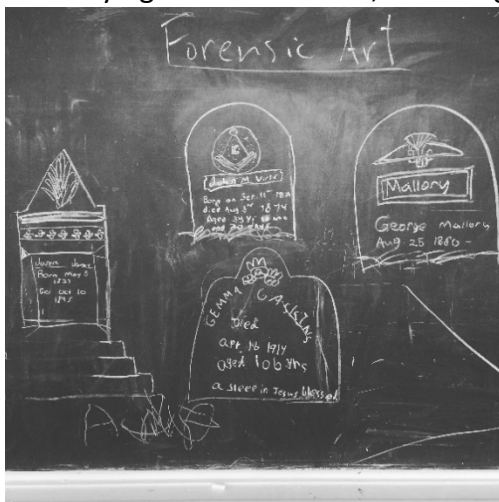 Forensic Art
John M
Born on Sep. 11th
died Aug 3rd 1874
Aged 34 Y
Mallory
George Mallory
Aug 25 1880 -
Born May 5
1821
Oct 10
1895
GEMMA
Died
apr. 16 1914
aged 106 yrs
a sleep in Jesus blessed